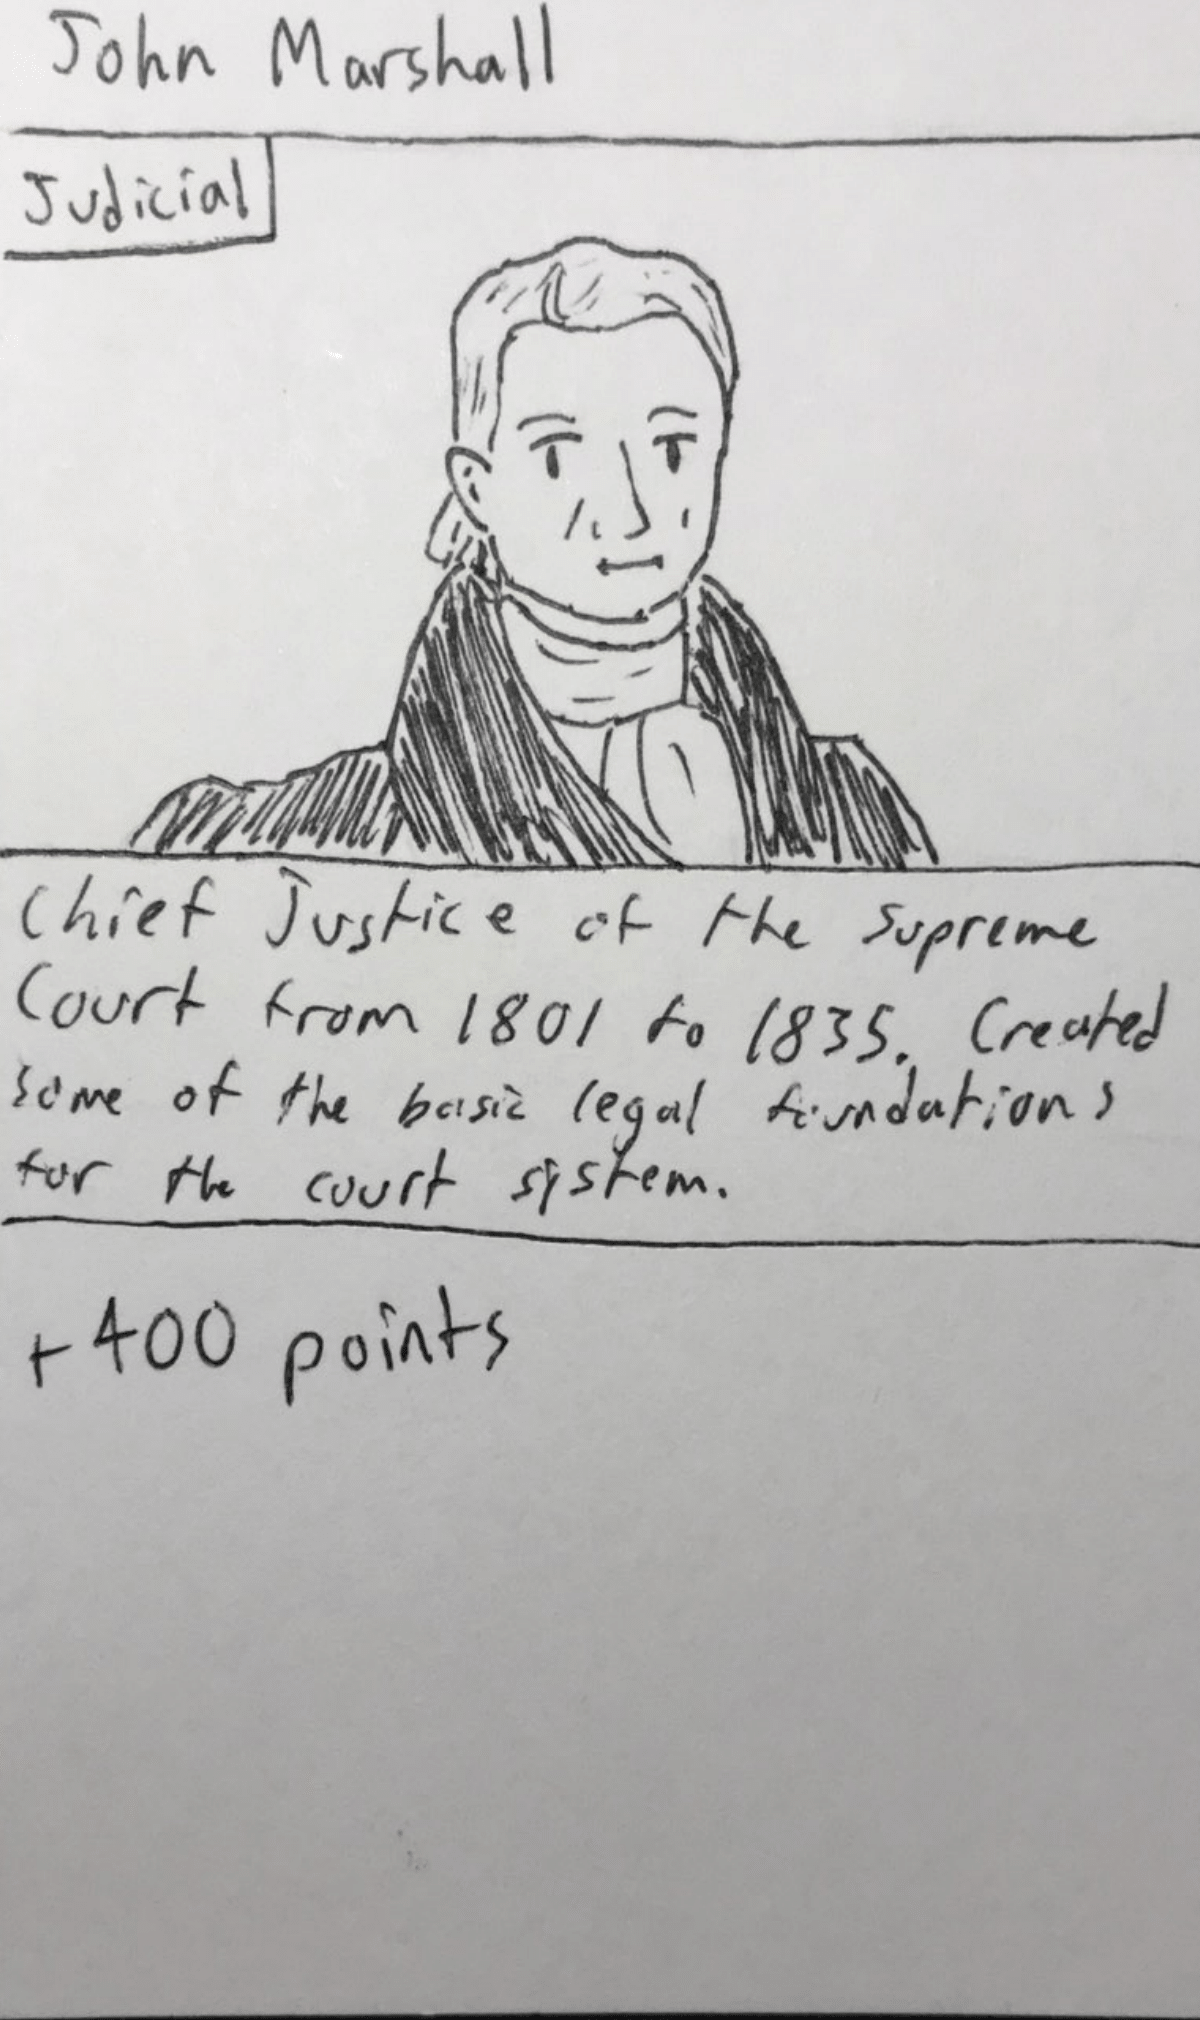 John Marshall
Judicial
Chief Justice of the Supreme
Court from 1801 to 1835. Created
some of the basic legal foundations
for the court system.
+400 points